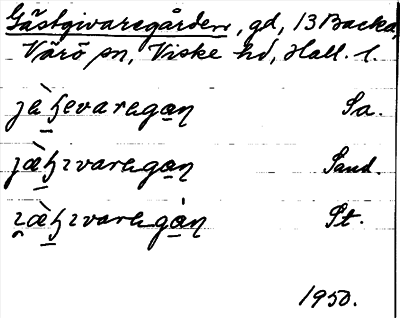 Gästgivaregården, gd, 13 Backa,
Värö sn, Viske hd, Hall. l.
jè̀ʒevaregan Sa.
jæ̀ʒıvaregan Sand.
ıæ̀ʒıvaregàn St.
1950.